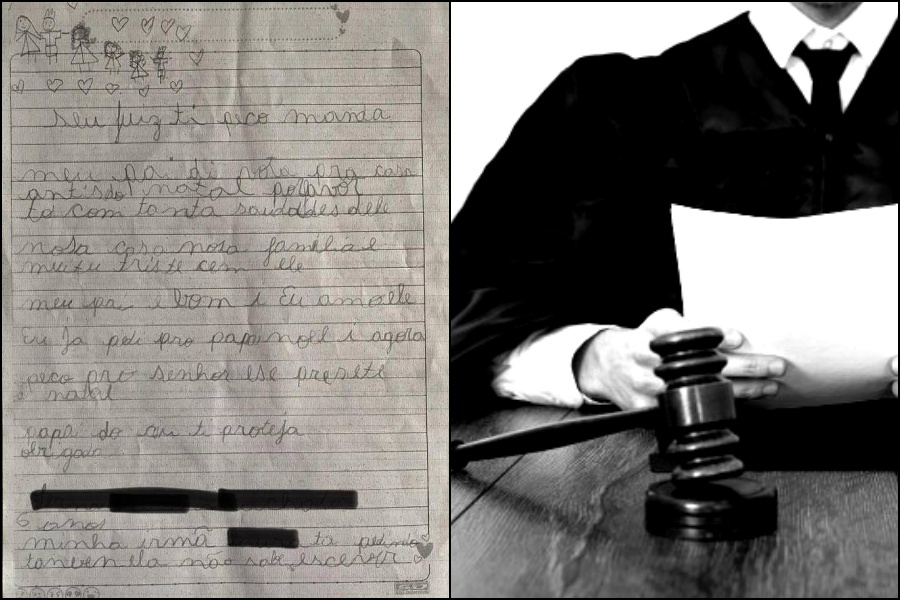 seu juiz ti peço manda
meu pai di vota pra casa
antis do natal porfavor
to com tanta saudades dele
nosa casa nosa familia e
muitu triste cem ele
meu pai é bom i Eu amo ele
Eu Ja pedi pro papai noél i agora
peço pro senhor ese presete
natal
papai do ceu ti proteja
obrigado
6 anos
minha irmã ta pedindo
tanben ela não sabe escerver